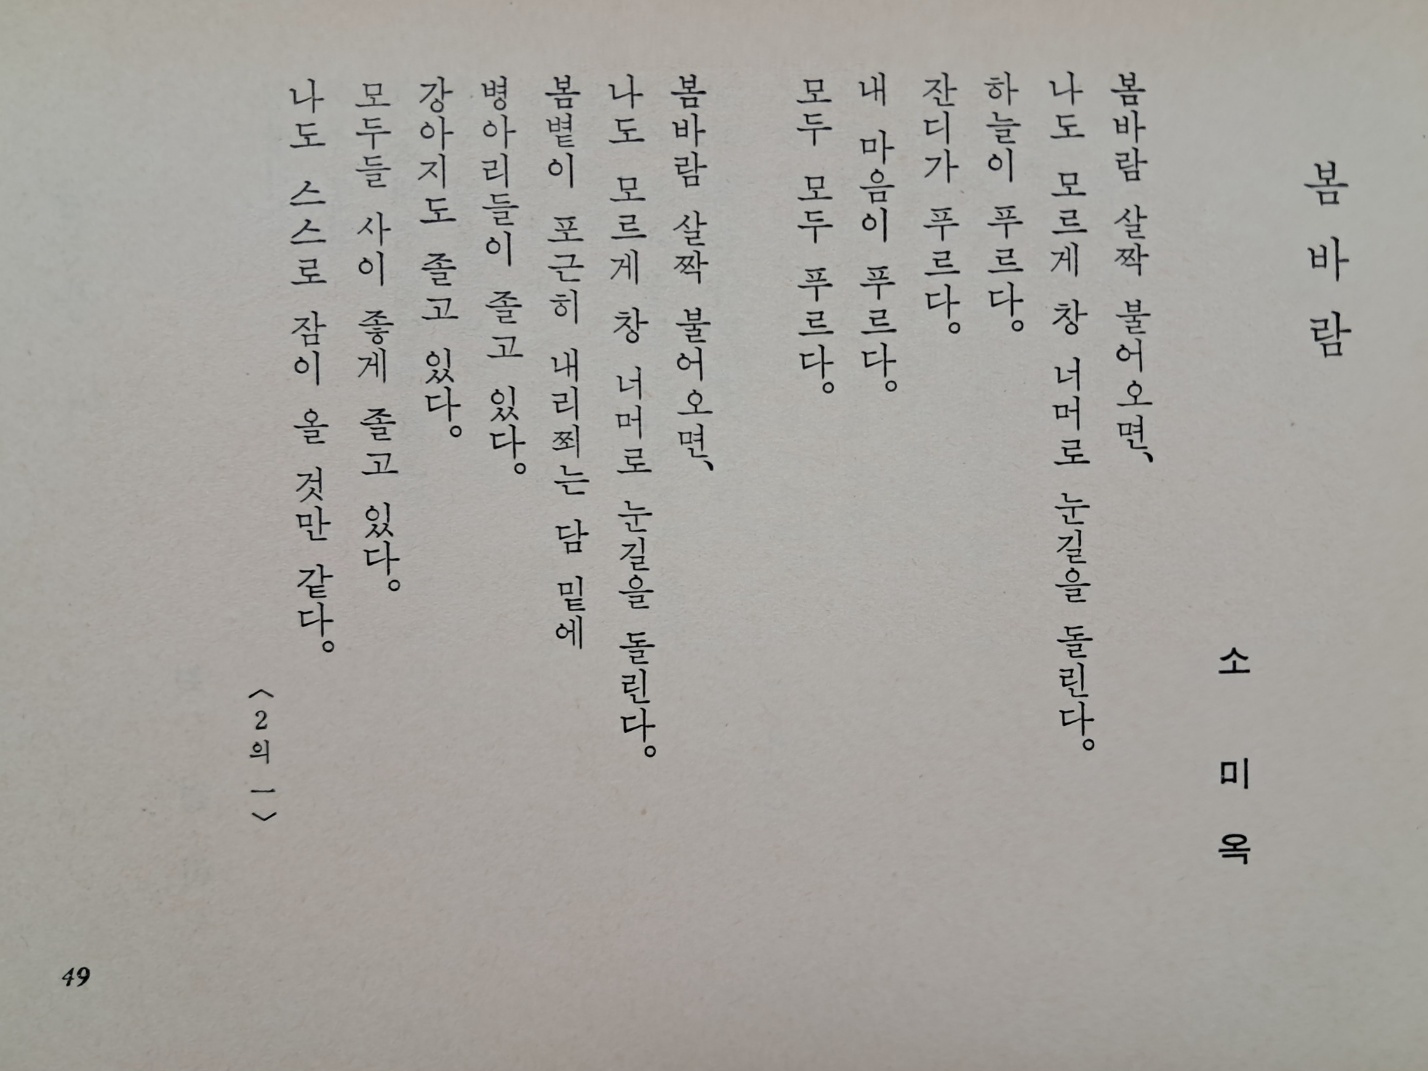 봄바람
소미옥
봄바람 살짝 불어오면,
나도 모르게 창 너머로 눈길을 돌린다.
하늘이 푸르다.
잔디가 푸르다.
내 마음이 푸르다.
모두 모두 푸르다.
봄바람 살짝 불어오면,
나도 모르게 창 너머로 눈길을 돌린다.
봄볕이 포근히 내리쬐는 담 밑에
병아리들이 졸고 있다.
강아지도 졸고 있다.
모두들 사이 좋게 졸고 있다.
나도 스스로 잠이 올 것만 같다.
〈2의 一〉
49